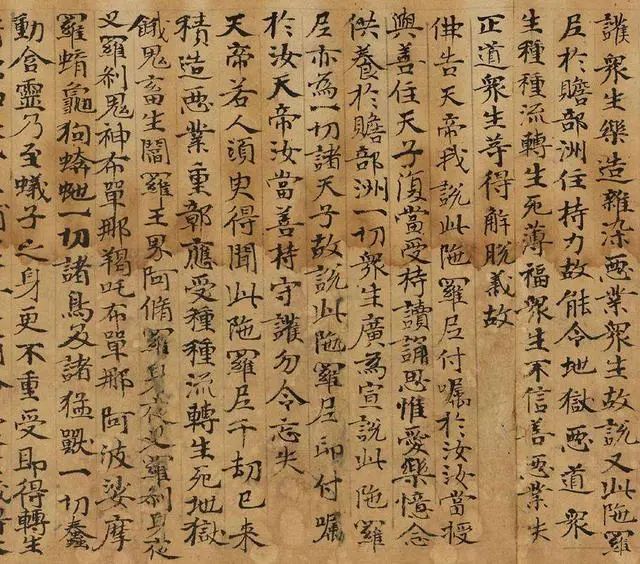 護衆生樂造雜染惡業衆生故說又此陁羅
尼於贍部洲住持力故能令地獄惡道衆
生種種流轉生死薄福衆生不信善惡業失
正道衆生等得解脫義故
佛告天帝我說此陁羅尼付囑於汝汝當授
與善住天子復當受持讀誦思惟愛樂憶念
供養於贍部洲一切衆生廣為宣說此陁羅
尼亦為一切諸天子故說此陁羅尼印付囑
於汝天帝汝當善持守護勿令忘失
天帝若人須臾得聞此陁羅尼千劫已來
積造惡業重鄣應受種種流轉生死地獄
餓鬼畜生閻羅王界阿脩羅身夜叉羅剎身夜
叉羅剎鬼神布單那羯吒布單那阿波娑摩
羅蜎龜狗蟒蛇一切諸鳥及諸猛獸一切蠢
動含靈乃至蟻子之身更不重受即得轉生